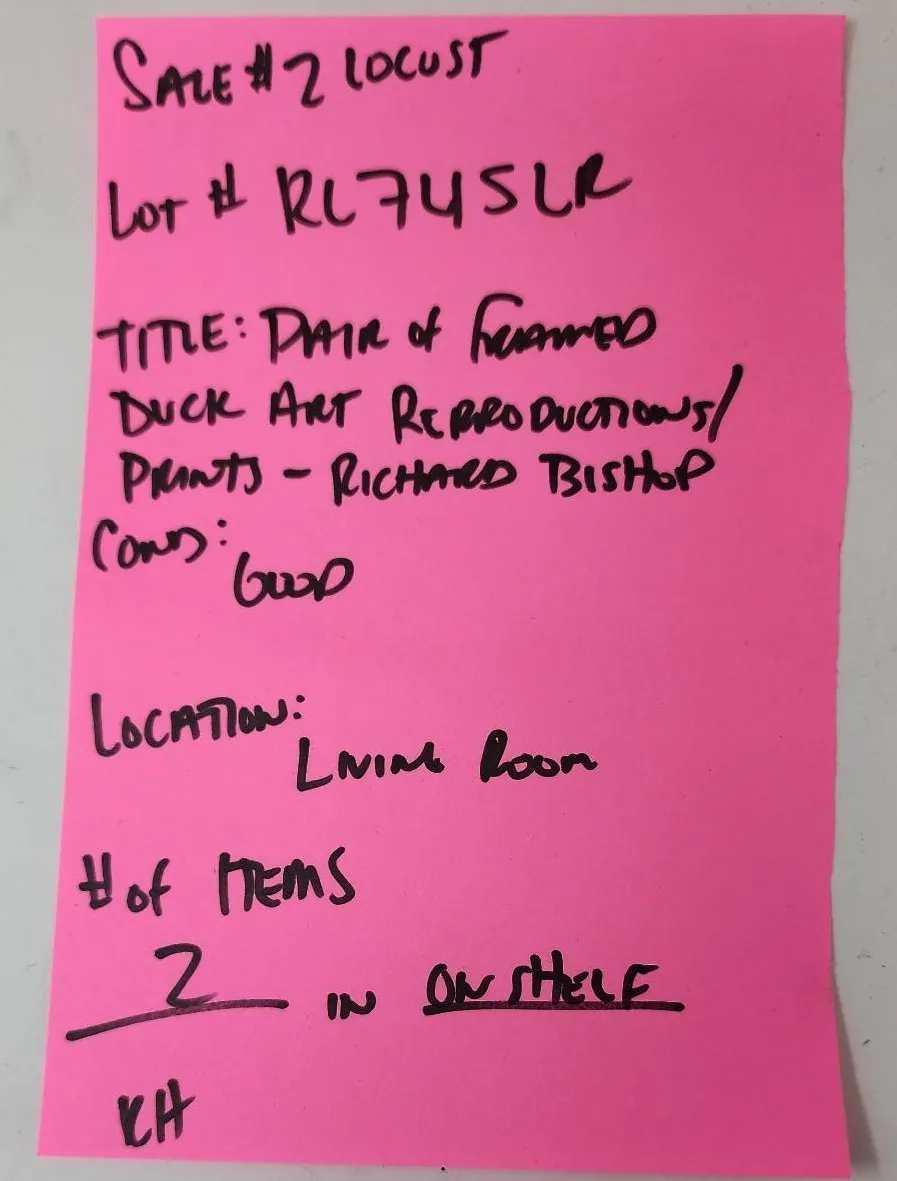 SALE # 2 LOCUST
Lot # RL745LR
TITLE: PAIR of FRAMED
DUCK ART REPRODUCTIONS/
PRINTS - RICHARD BISHOP
COND:
GOOD
LOCATION:
LIVING ROOM
# of ITEMS
2 IN ON SHELF
KH